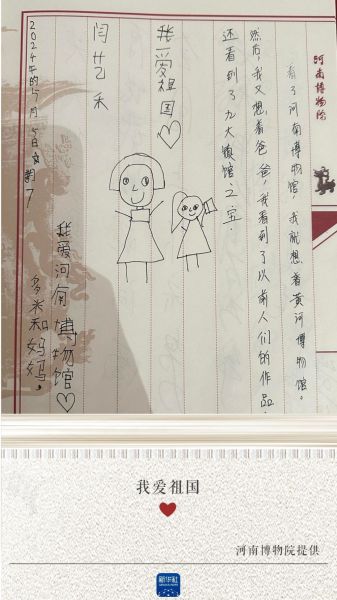 河南博物院
看了河南博物馆，我就想着黄河博物馆。
然后，我又想着爸爸，我看到了以前人们的作品，
还看到了九大镇馆之宝.
我爱祖国♡
闫艺禾
2024年的5月5日
我爱河南博物馆♡
多米和妈妈。
我爱祖国
河南博物院提供
新华社